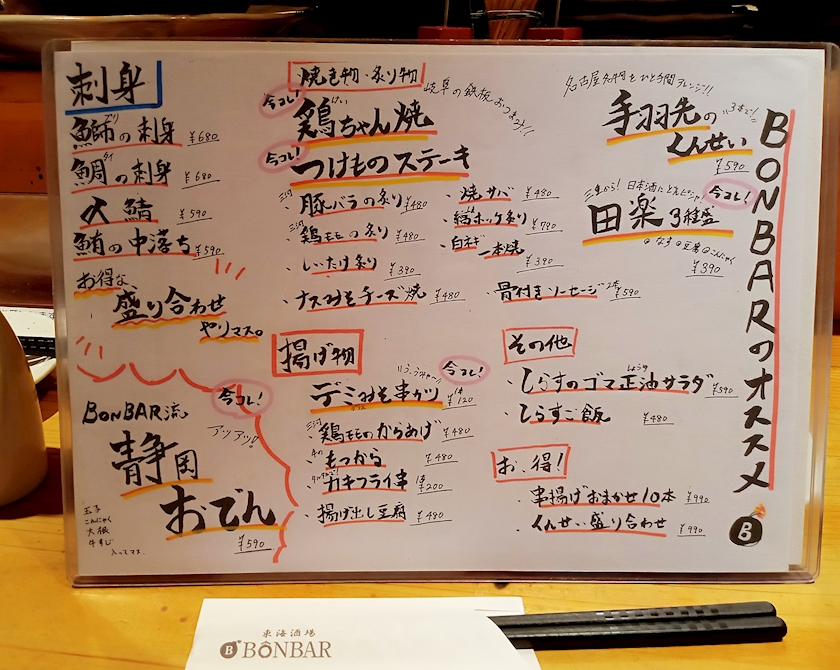 BONBARのオススメ
名古屋名物をひと手間アレンジ!!
手羽先の
くんせい
3本で!!
¥590
日本酒にとてもピッタリ
今コレ!
田楽3種盛
なす 豆腐 こんにゃく
¥390
焼き物・炙り物
岐阜の鉄板おつまみ!!
今コレ!
鶏ちゃん焼
けい
今コレ!
つけものステーキ
三河
・豚バラの炙り ¥480
三河
・鶏モモの炙り ¥480
・しいたけ炙り ¥390
・ナスみそチーズ焼 ¥480
・焼サバ ¥480
・縞ホッケ炙り ¥790
・白ネギ一本焼 ¥390
・骨付きソーセージ 2本 ¥590
刺身
鰤の刺身 ¥680
ブリ
鯛の刺身 ¥680
タイ
〆鯖 ¥590
鮪の中落ち ¥590
お得な
盛り合わせ
やりマス。
揚げ物
今コレ!
デミみそ串カツ 1本 ¥120
三河
・鶏モモのからあげ ¥480
・もつから ¥480
・カキフライ串 1本 ¥200
・揚げ出し豆腐 ¥480
その他
・しらすのゴマ正油サラダ ¥590
しょうゆ
・しらすご飯 ¥480
お、得!
・串揚げおまかせ10本 ¥990
・くんせい盛り合わせ ¥990
今コレ!
BONBAR流
アッアツ!!
静岡
おでん
¥590
玉子
こんにゃく
大根
牛すじ
入ってマス.
B
東海酒場
B BONBAR